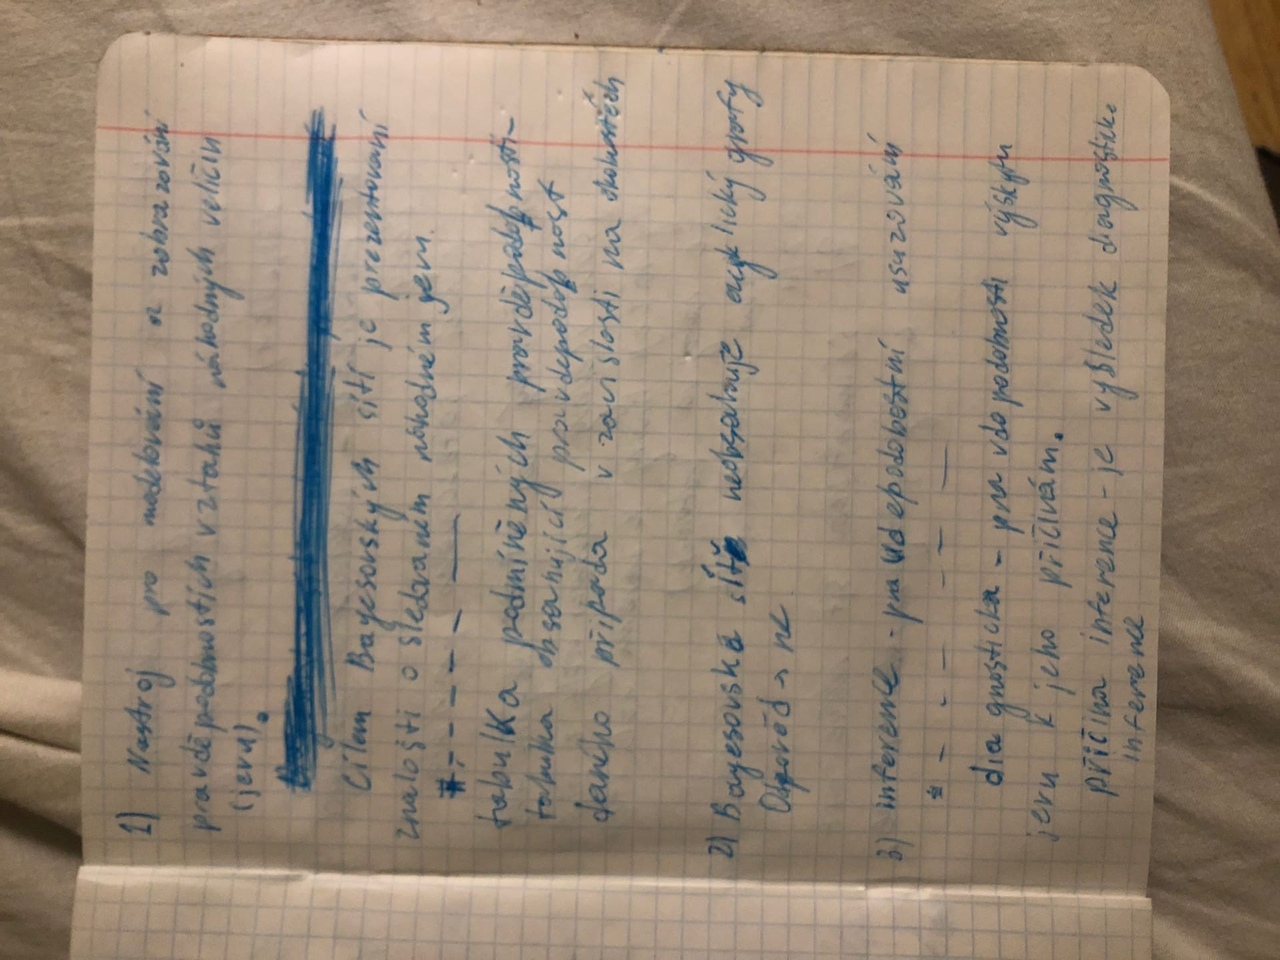 1) Nastroj pro modelování a zobrazování
pravděpodobnostích vztahů náhodných veličin
(jevu).
Cílem Bayesovských sítí je prezentování
znalosti o sledovaném náhodném jevu.
tabulka podmíněných pravděpodobností -
tabulka obsahující pravdepodobnost
daného případa v zavislosti na
2) Bayesovské sítě neobsahuje acyklický grafy
Odpověd → ne
3) inference - usuzování
diagnosticka - pru vdo podobnosti výskytu
jevu k jeho příčinám.
příčilna inference - je vysledek diagnosticke
inference